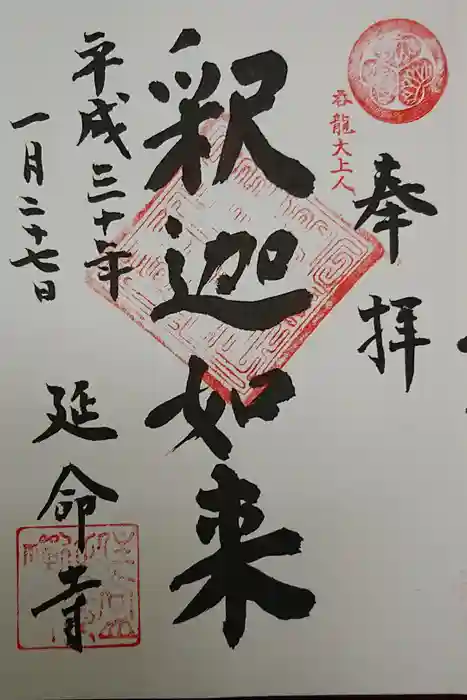 奉拝
呑龍大上人
釈迦如来
平成三十年
一月二十七日
延命寺